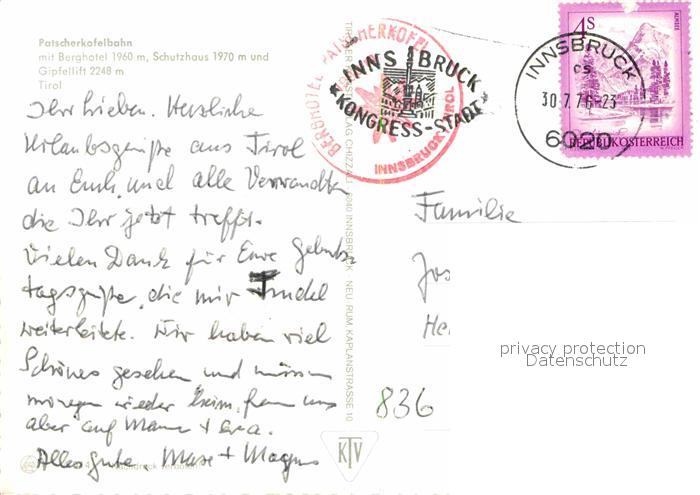 Patscherkofelbahn
mit Berghotel 1960 m, Schutzhaus 1970 m und
Gipfellift 2248 m
Tirol
Ihr Lieben. Herzliche
Urlaubsgrüße aus Tirol
an Euch und alle Verwandten
die Ihr jetzt trefft.
Vielen Dank für Eure Geburts-
tagsgrüße, die mir
weiterleitete. Wir haben viel
Schönes gesehen und müssen
morgen wieder heim, freun uns
aber auf Mama + Eva.
Alles Gute, +
BERGHOTEL PATSCHERKOFEL
INNSBRUCK TIROL
INNSBRUCK
KONGRESS-STADT
INNSBRUCK
30.7.76-23
6020
4S
ALMSEE
REPUBLIK ÖSTERREICH
6040 INNSBRUCK - NEU RUM KAPLANSTRASSE 10
Familie
Jos
He
privacy protection
Datenschutz
836
KTV